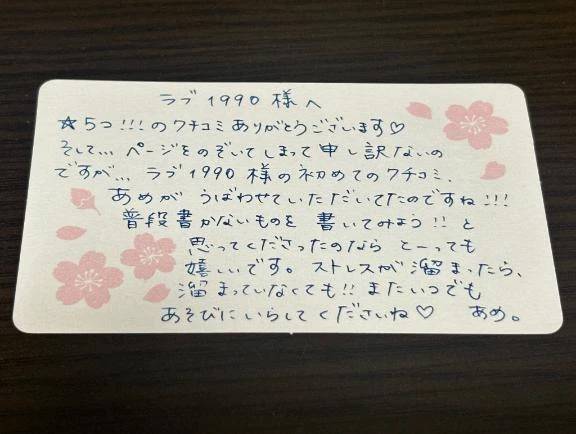 ラブ1990様へ
☆5つ!!!のクチコミありがとうございます♡
そして… ページをのぞいてしまって申し訳ないの
ですが… ラブ1990様の初めてのクチコミ、
あめが うばわせていただいてたのですね!!!
普段書かないものを 書いてみよう!! と
思ってくださったのなら とーっても
嬉しいです。ストレスが溜まったら、
溜まっていなくても!! またいつでも
あそびにいらしてくださいね♡ あめ。